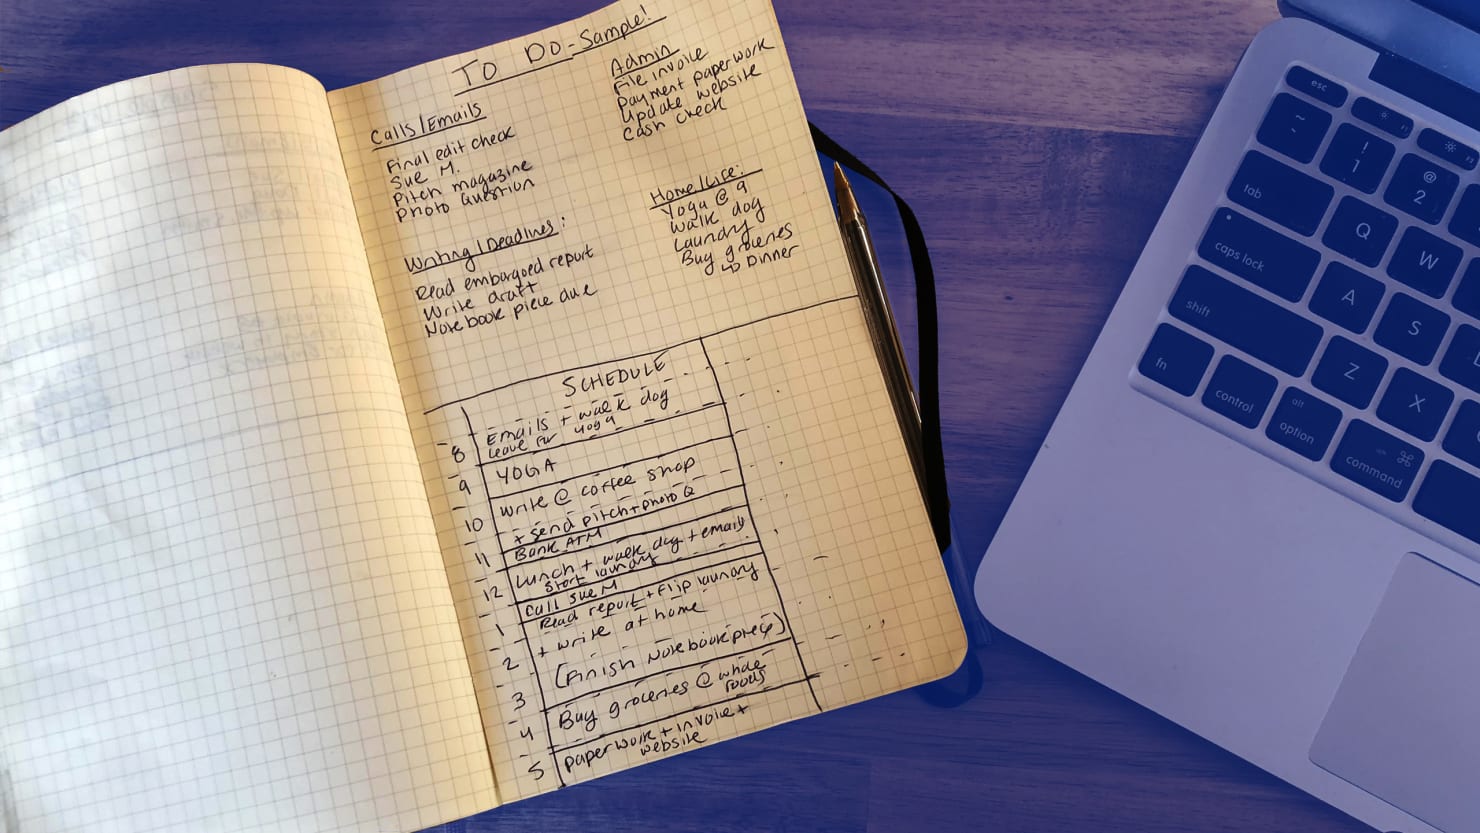 TO DO-Sample!
Calls/Emails
Final edit check
Sue M.
Pitch magazine
Photo question
Writing/Deadlines:
Read embargoed report
Write draft
Notebook piece due
Admin
File invoice
payment paperwork
update website
cash check
Home/Life:
Yoga @ 9
Walk dog
Laundry
Buy groceries
Dinner
SCHEDULE
8 Emails + walk dog
leave for yoga
9 YOGA
10 write @ coffee shop
+ send pitch + photo Q
11 Bank ATM
12 Lunch + walk dog + email
start laundry
Call Sue M
1 Read report + flip laundry
2 + write at home
3 (Finish Notebook piece)
4 Buy groceries @ whole
foods
5 paperwork + invoie +
website
esc
~
!
1
@
2
tab
Q
W
caps lock
A
S
shift
Z
X
fn
control
alt
option
⌘
command